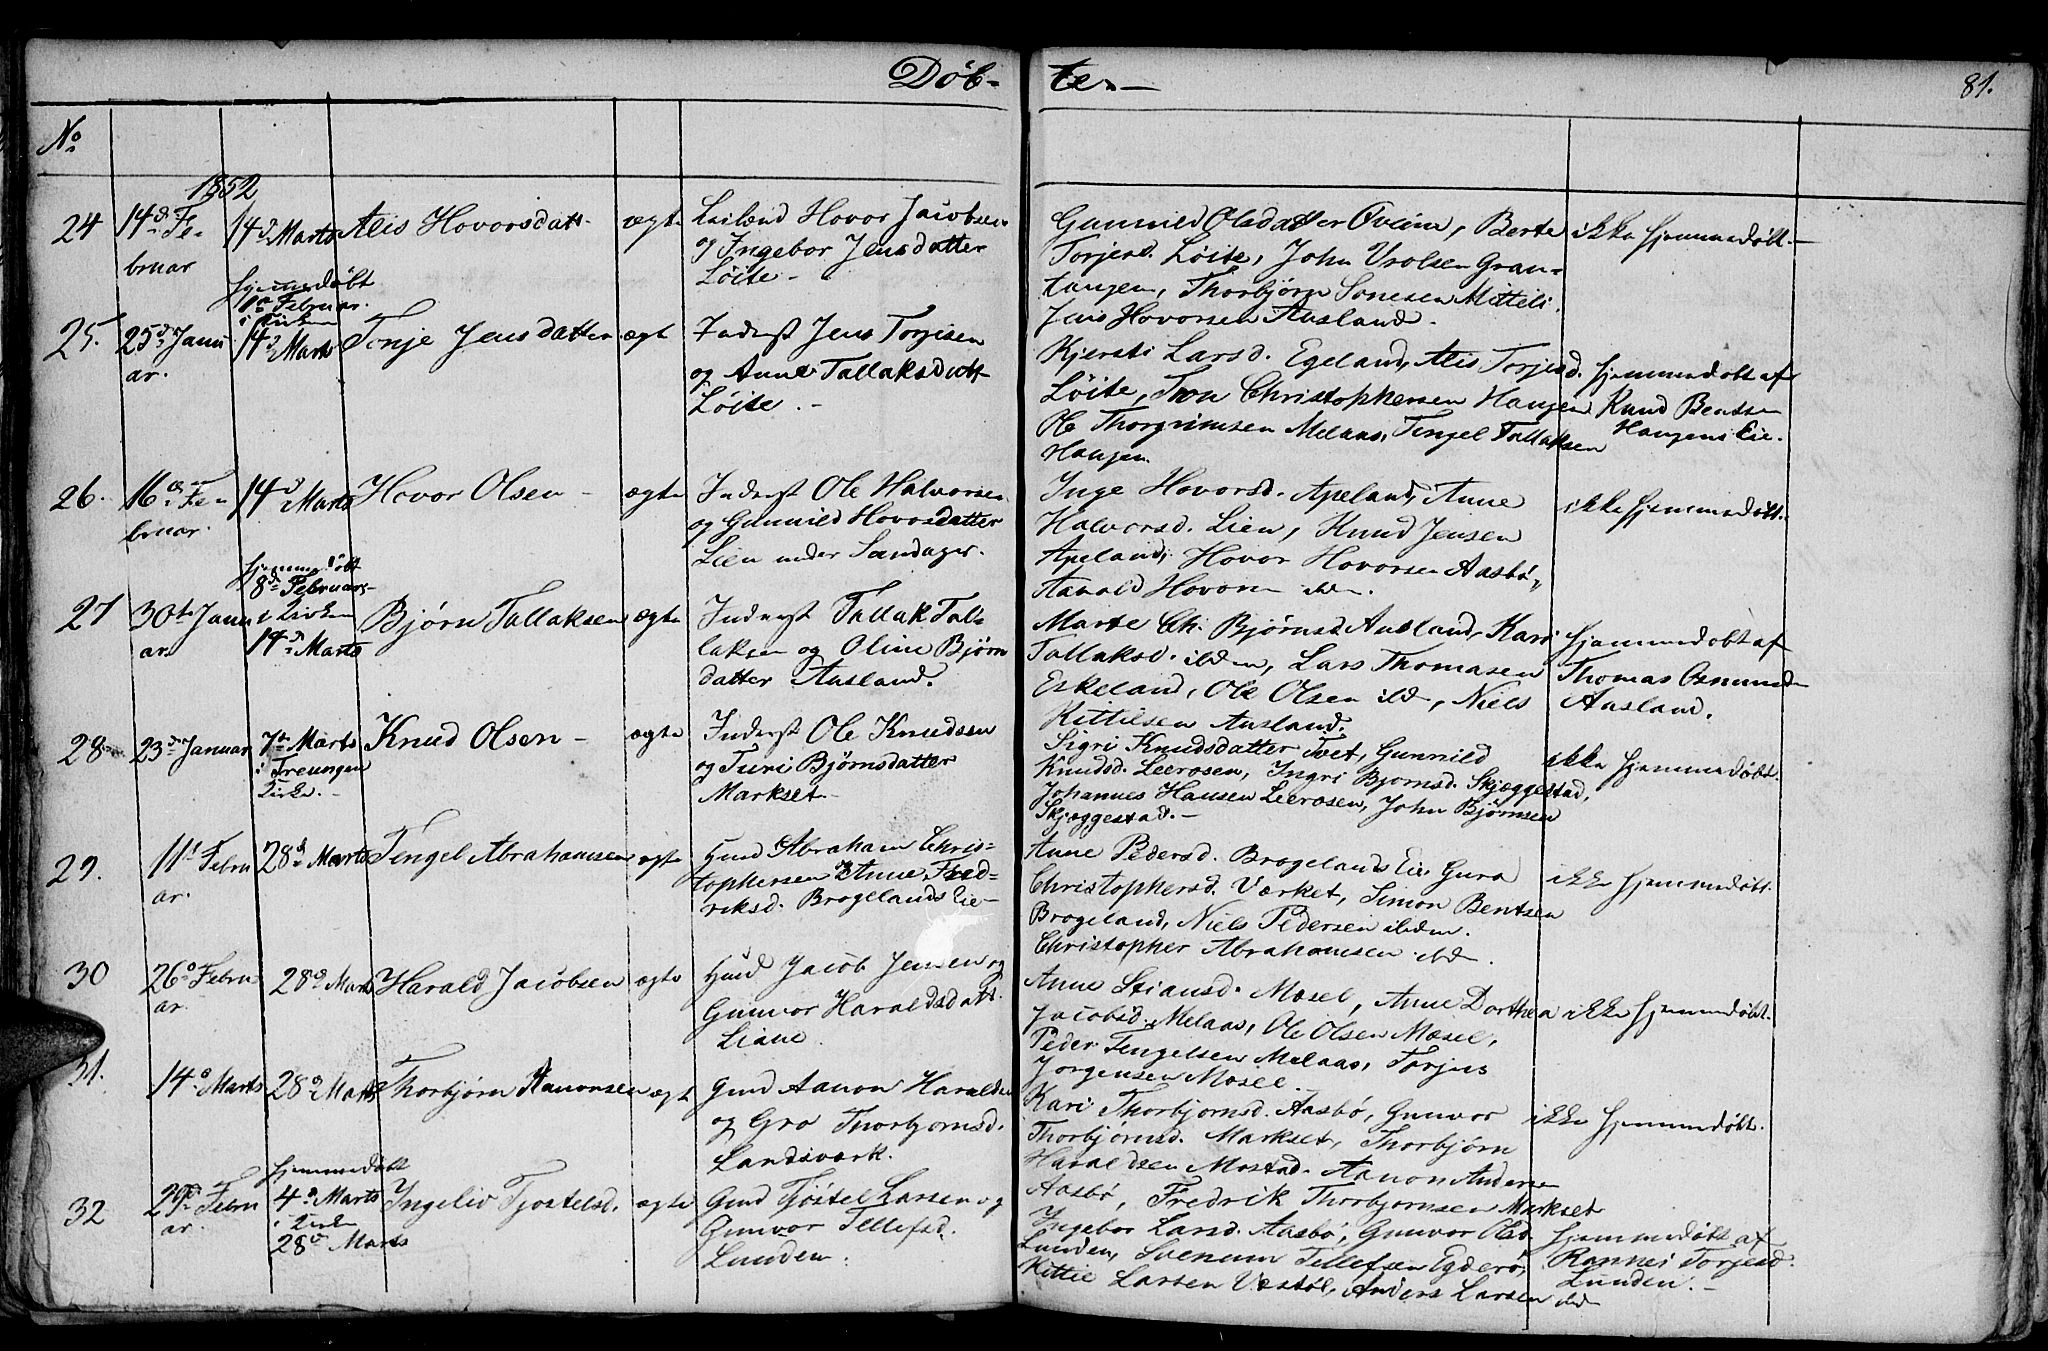 Døb-
te.-
81.
No
1852
24
14de Fe-
bruar
14d Marts
Alis Hovorsdatt.
ægte
Leilænd Hovor Jacobsen
og Ingebor Jensdatter
Löite -
Gunnild Olsdatter Øveine, Berte
Torjesd. Löite, John Vrolsen Gran-
tangen, Thorbjörn Sonesen Mitteli
Jens Hovorsen Ausland.
ikke hjemmedøbt.
25.
25d Janu
ar.
hjemmedøbt
1ste Februar.
i Kirken
14d Marts
Tonje Jensdatter
ægt
Inderst Jens Torjisen
og Anne Tallaksdatt
Löite. -
Kjersti Larsd. Egeland, Alis Torjesd.
Löite, Tron Christophersen Haugen
Ole Thorgrimsen Melaas, Tengel Tallaksen
Haugen
hjemmedøbt af
Knud Bentsen
Haugens Eie.
26.
16de Fe-
bruar.
14d Marts
Hovor Olsen -
ægte
Inderst Ole Halvorsen
og Gunnild Hovorsdatter
Lien under Sandager.
Inge Hovorsd. Apeland, Anne
Halvorsd. Lien, Knud Jensen
Apeland, Hovor Hovorsen Aasbø,
Aanald Hovorsen ibd.
ikke hjemmedøbt.
27
30te Janu
ar
hjemmedøbt
8d Februar
i Kirken
14d Marts
Bjørn Tallaksen
ægte
Inderst Tallak Tal-
laksen og Oline Bjørn
datter Ausland.
Marte Ch. Bjørnsd. Ausland, Kari
Tallaksd. ibdm, Lars Thomasen
Eskeland, Ole Olsen ibd, Niels
Kittilsen Ausland.
hjemmedøbt af
Thomas Osmunds
Ausland.
28
23d Januar
7de Marts
i Treungen
Kirke. -
Knud Olsen -
ægte
Inderst Ole Knudsen
og Turi Bjørnsdatter
Markset -
Sigri Knudsdatter Tvet, Gunnild
Knudsd. Leerosen, Ingri Bjornsd. Skjæggestad,
Johannes Hansen Leerosen, John Bjørnsen
Skjæggestad. -
ikke hjemmedøbt.
29.
11t Febru
ar.
28d Marts
Tengel Abrahamsen
ægte
Hmd Abraham Chris-
tophersen & Anne Fred-
riksd. Brogelands Eie -
Anne Pedersd. Brogelands Eie, Gura
Christophersd. Værket, Simon Bentsen
Brogeland, Niels Pedersen ibidem.
Christopher Abrahamsen ibd.
ikke hjemmedøbt.
30
26de Febru-
ar.
28d Marts
Harald Jacobsen
ægte
Hmd Jacob Jensen og
Gunvor Haraldsdatt.
Liane.
Anne Stiansd. Mosel, Anne Dorthea
Jacobsd. Melaas, Ole Olsen Mosel,
Peder Tengelsen Melaas, Torjus
Jorgensen Mosel.
ikke hjemmedøbt.
31.
14d Marts
28d Marts
Thorbjørn Aanonsen
ægt
Gmd Aanon Haraldsen
og Gro Thorbjørnsd.
Landsværk.
Kari Thorbjornsd. Aasbø, Gunvor
Thorbjørnsd. Markset, Thorbjørn
Haraldsen Mostad. Aanon Andersen
Aasbø, Fredrik Thorbjornsen Markset
ikke hjemmedøbt.
32
29d Febru
ar.
hjemmedøbt
4d Marts
i Kirken
28d Marts
Ingeliv Tjostelsd.
ægte
Gmd Tjöstel Larsen og
Gunvor Tellefsd.
Lunden.
Ingebor Larsd. Aasbø, Gunvor Olsd.
Lunden, Svenum Tellefsen Egderö,
Kittil Larsen Vestöl, Anders Larsen ibd
hjemmedøbt af
Rannei Torjesd.
Lunden. -